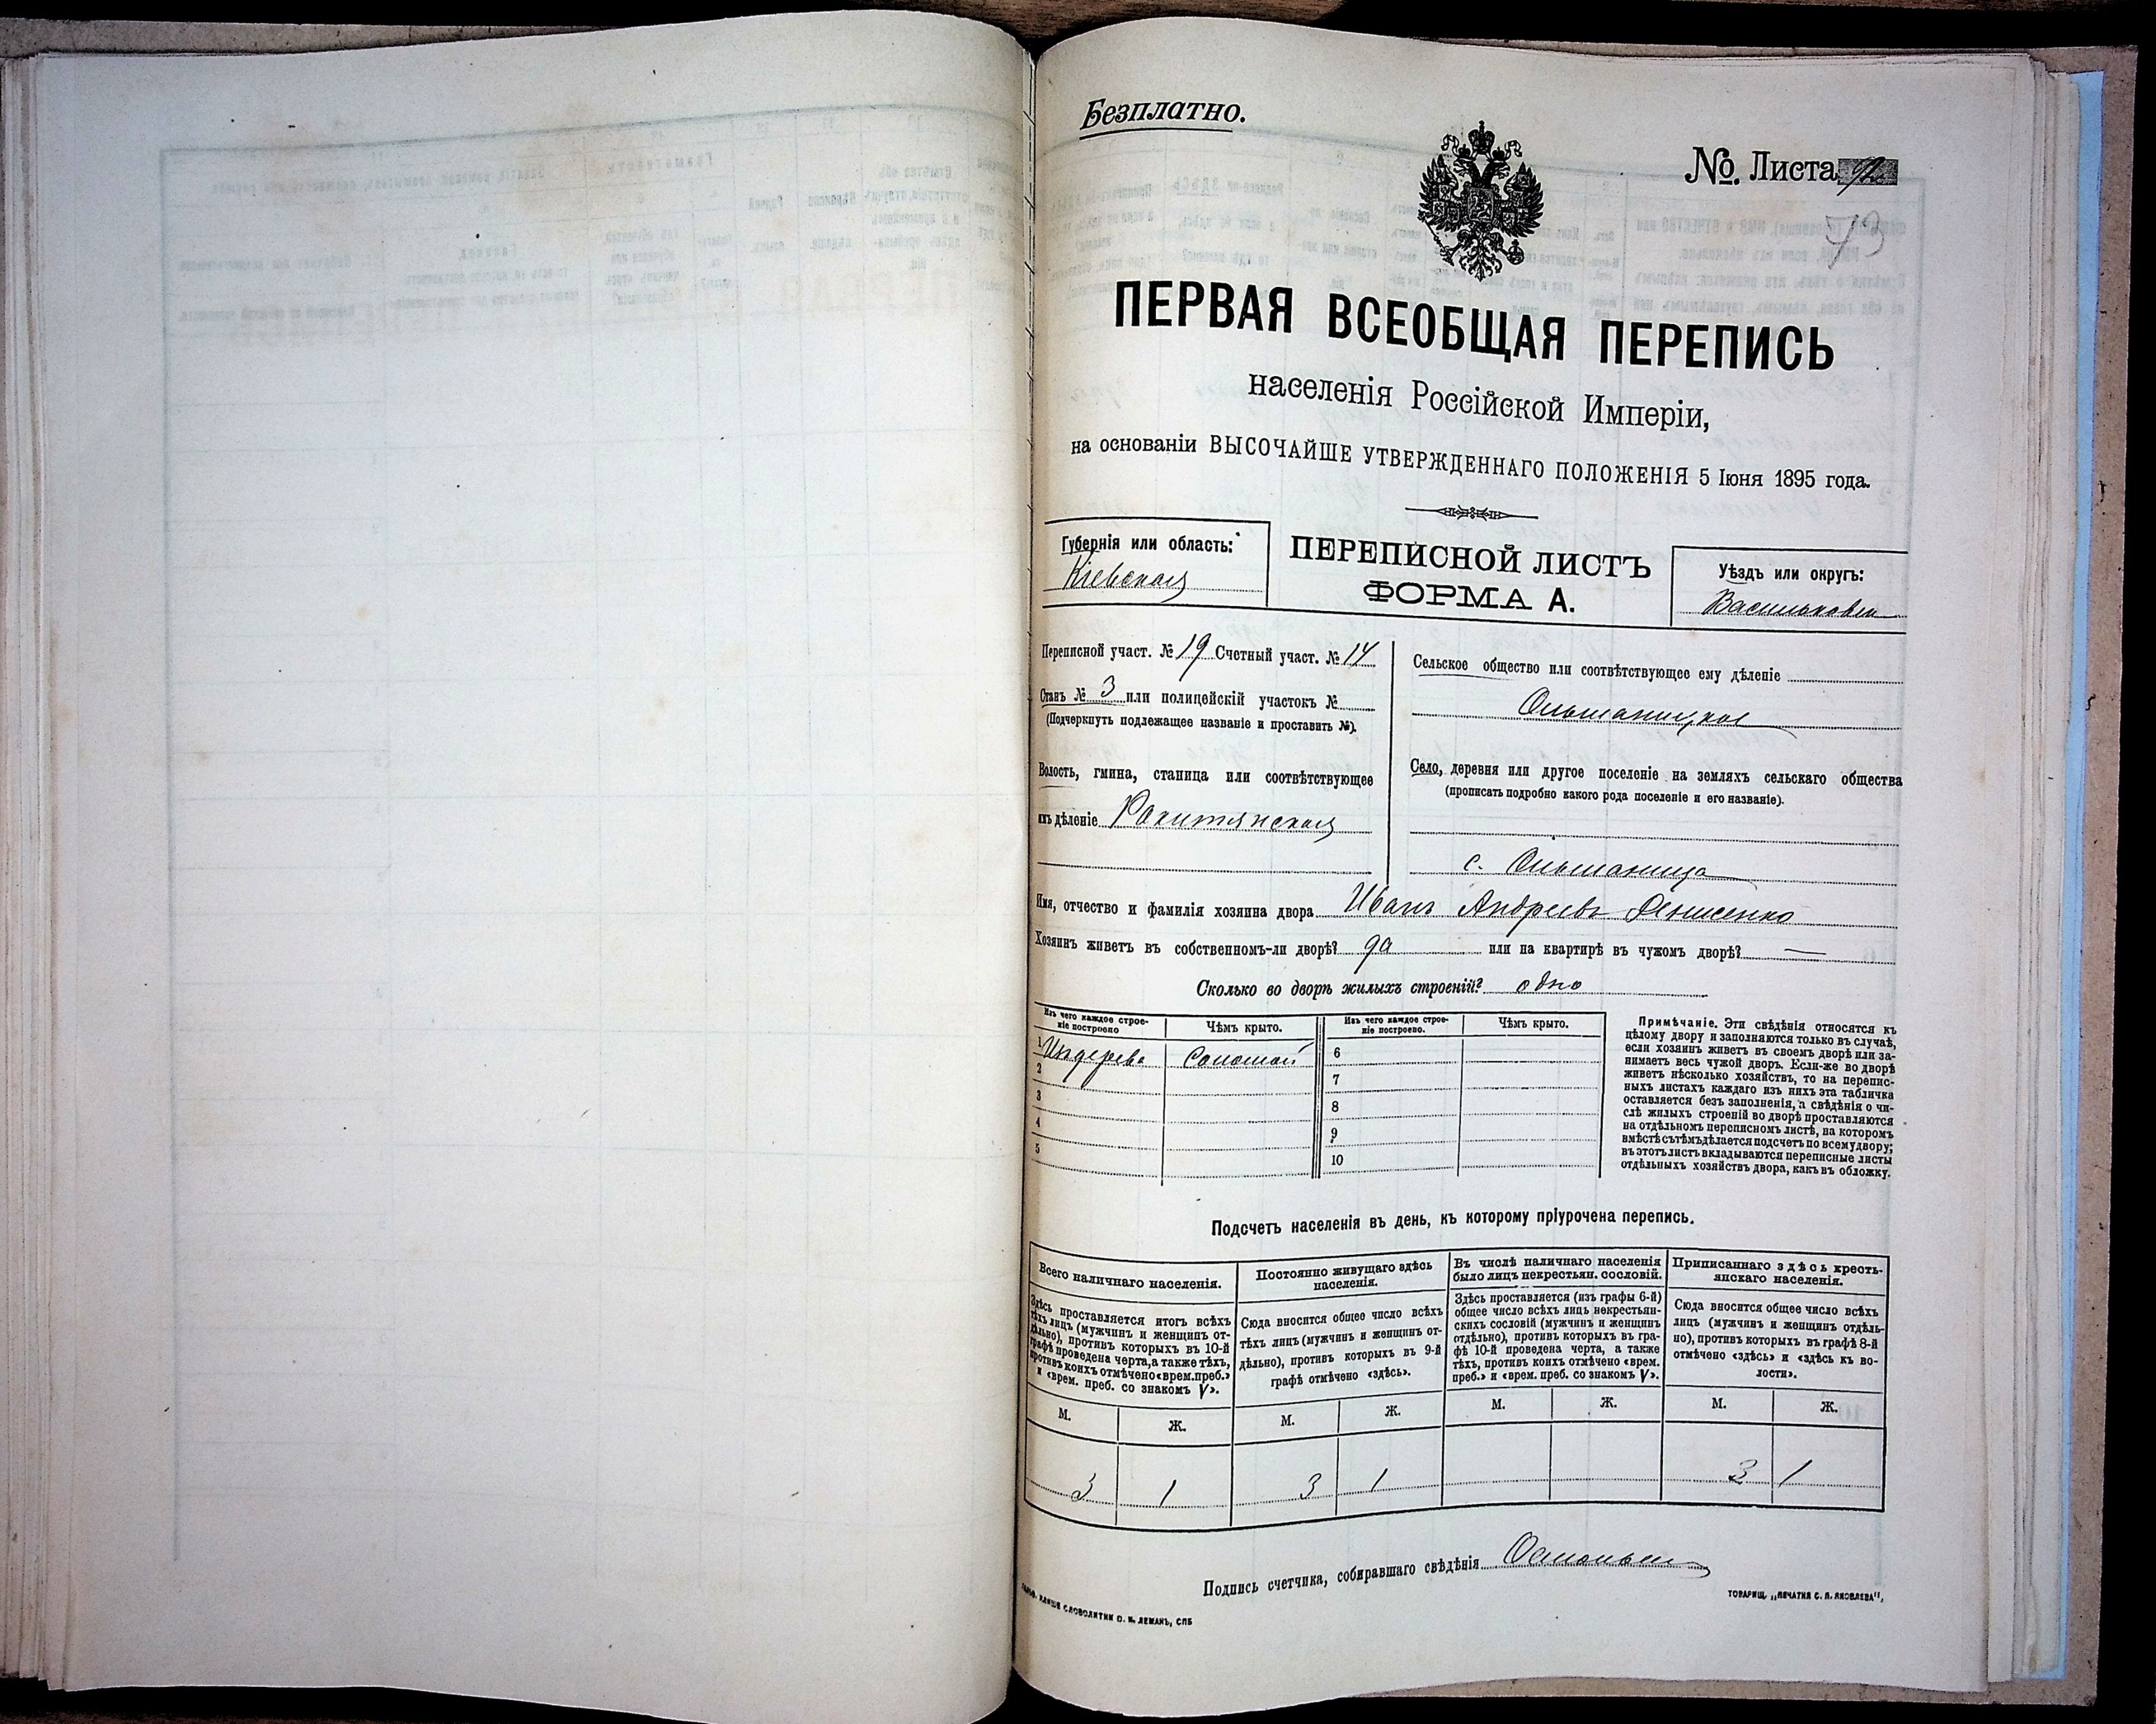 Безплатно.
№. Листа
73
ПЕРВАЯ ВСЕОБЩАЯ ПЕРЕПИСЬ
населенія Россійской Имперіи,
на основаніи ВЫСОЧАЙШЕ УТВЕРЖДЕННАГО ПОЛОЖЕНІЯ 5 Іюня 1895 года.
Губернія или область:
Кіевская
ПЕРЕПИСНОЙ ЛИСТЪ
ФОРМА А.
Уѣздъ или округъ:
Васильковск
Переписной участ. № 19 Счетный участ. № 14
Станъ № 3 или полицейскій участокъ №
(Подчеркнуть подлежащее названіе и проставить №).
Волость, гмина, станица или соотвѣтствующее
имъ дѣленіе Ракитянская
Сельское общество или соотвѣтствующее ему дѣленіе
Ольшаницкое
Село, деревня или другое поселеніе на земляхъ сельскаго общества
(прописать подробно какого рода поселеніе и его названіе).
с. Ольшаница
Имя, отчество и фамилія хозяина двора Иванъ Андреевъ Денисенко
Хозяинъ живетъ въ собственномъ-ли дворѣ? да или на квартирѣ въ чужомъ дворѣ? —
Сколько во дворѣ жилыхъ строеній? одно
Изъ чего каждое строе-
ніе построено
Чѣмъ крыто.
Изъ чего каждое строе-
ніе построено.
Чѣмъ крыто.
1 Издерева Соломой 6
2 7
3 8
4 9
5 10
Примѣчаніе. Эти свѣдѣнія относятся къ
цѣлому двору и заполняются только въ случаѣ,
если хозяинъ живетъ въ своемъ дворѣ или за-
нимаетъ весь чужой дворъ. Если-же во дворѣ
живетъ нѣсколько хозяйствъ, то на перепис-
ныхъ листахъ каждаго изъ нихъ эта табличка
оставляется безъ заполненія, а свѣдѣнія о чи-
слѣ жилыхъ строеній во дворѣ проставляются
на отдѣльномъ переписномъ листѣ, на которомъ
вмѣстѣ съ тѣмъ дѣлается подсчетъ по всему двору;
въ этотъ листъ вкладываются переписные листы
отдѣльныхъ хозяйствъ двора, какъ въ обложку.
Подсчетъ населенія въ день, къ которому пріурочена перепись.
Всего наличнаго населенія.
Здѣсь проставляется итогъ всѣхъ
тѣхъ лицъ (мужчинъ и женщинъ от-
дѣльно), противъ которыхъ въ 10-й
графѣ проведена черта, а также тѣхъ,
противъ коихъ отмѣчено «врем. преб.»
и «врем. преб. со знакомъ V».
Постоянно живущаго здѣсь
населенія.
Сюда вносится общее число всѣхъ
тѣхъ лицъ (мужчинъ и женщинъ от-
дѣльно), противъ которыхъ въ 9-й
графѣ отмѣчено «здѣсь».
Въ числѣ наличнаго населенія
было лицъ некрестьян. сословій.
Здѣсь проставляется (изъ графы 6-й)
общее число всѣхъ лицъ некрестьян-
скихъ сословій (мужчинъ и женщинъ
отдѣльно), противъ которыхъ въ гра-
фѣ 10-й проведена черта, а также
тѣхъ, противъ коихъ отмѣчено «врем.
преб.» и «врем. преб. со знакомъ V».
Приписаннаго здѣсь кресть-
янскаго населенія.
Сюда вносится общее число всѣхъ
лицъ (мужчинъ и женщинъ отдѣль-
но), противъ которыхъ въ графѣ 8-й
отмѣчено «здѣсь» и «здѣсь къ во-
лости».
М. Ж. М. Ж. М. Ж. М. Ж.
3 1 3 1 3 1
Подпись счетчика, собиравшаго свѣдѣнія
СЛОВОЛИТНИ О. И. ЛЕМАНЪ, СПБ
ТОВАРИЩ. „ПЕЧАТНЯ С. П. ЯКОВЛЕВА",